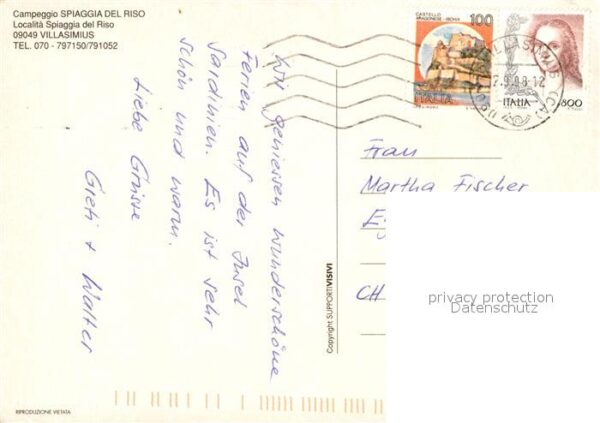 Campeggio SPIAGGIA DEL RISO
Località Spiaggia del Riso
09049 VILLASIMIUS
TEL. 070 - 797150/791052
Wir geniessen wunderschöne
Ferien auf der Insel
Sardinien. Es ist sehr
schön und warm.
Liebe Grüsse
Greti + Walter
CASTELLO
ARAGONESE - ISCHIA
100
ITALIA
ITALIA
800
VILLASIMIUS (CA)
Frau
Martha Fischer
E
CH
privacy protection
Datenschutz
Copyright SUPPORTIVISIVI
RIPRODUZIONE VIETATA